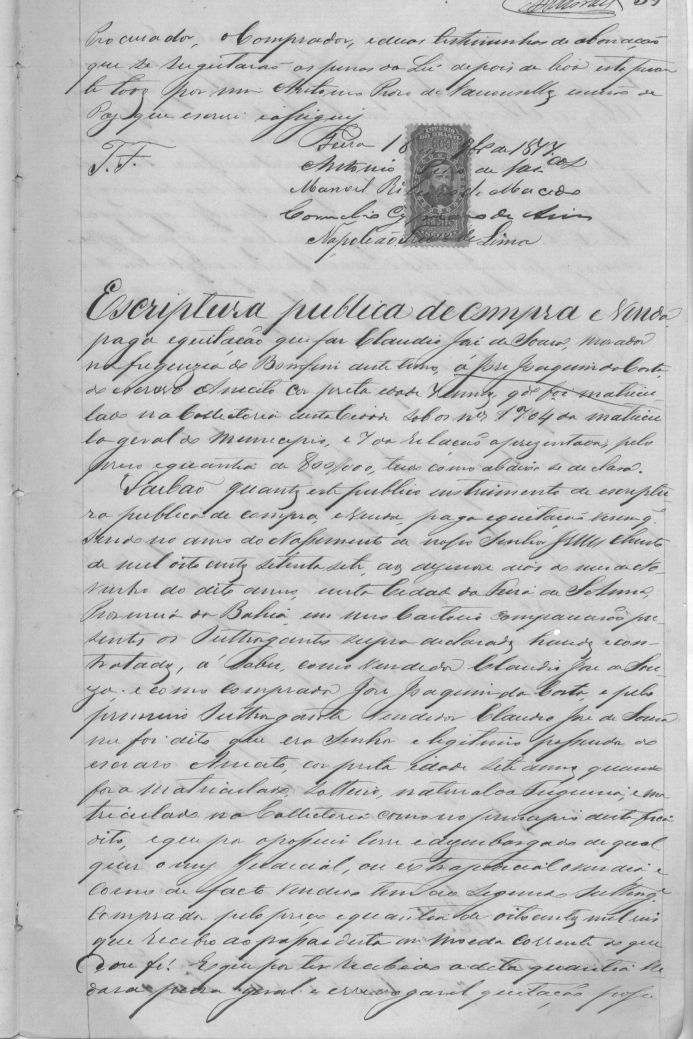 Procurador, o Comprador, e duas testimunhas de abonação
que se sugeitarão as penas da Lei depois de lhes ser lida
por mim Antonio de Vasconcellos escrivão de
Paz que escrevi e assignei
Feira 18 de 1877.
T. F.
Antonio de Vas.cos
Manoel Ribeiro de Macedo
Cornelio Cypriano de Assis
Napoleão de Lima
Escriptura publica de compra e Venda
paga e quitação que faz Claudio José de Souza, morador
na freguezia do Bomfim deste termo, á José Joaquim da Costa,
do escravo Aniceto cor preta idade 7 annos, que foi matricu-
lado na Collectoria desta Cidade sob os nos 1704 da matricu-
la geral do Municipio, e 7 da relação aprezentada, pelo
preço e quantia de 800$000, tudo como abaixo se declara.
Saibão quantos este publico instrumento de escriptu-
ra publica de compra, e Venda, paga e quitação virem q.
Sendo no anno do Nascimento de nosso Senhor Jezus Christo
de mil oito centos setenta sete, aos dezenove dias do mez de No-
vembro do dito anno, nesta Cidade da Feira de S. Anna,
Provincia da Bahia, em meu Cartorio comparecerão pre-
sentes os outhorgantes supra declarados, havidos e con-
tratados, a Saber, como vendedor Claudio José de Sou-
za e como comprador José Joaquim da Costa, e pelo
primeiro outhorgante vendedor Claudio José de Souza
me foi dito que era Senhor e legitimo possuidor do
escravo Aniceto, cor preta idade sete annos, quando
fora matriculado, Solteiro, natural da freguezia, e ma-
triculado na Collectoria como no principio desta fica
dito, e que por o possuir livre e dezembargado de qual
quer onus Judicial, ou extrajudicial o vendia e
como de facto vendido tem ao segundo outhorg.e
Comprador pelo preço e quantia de oito centos mil reis
que recebeo ao passar desta em moeda corrente do que
dou fé. E que por ter recebido a dita quantia lhe
dava plena geral e irrevogavel quitação,